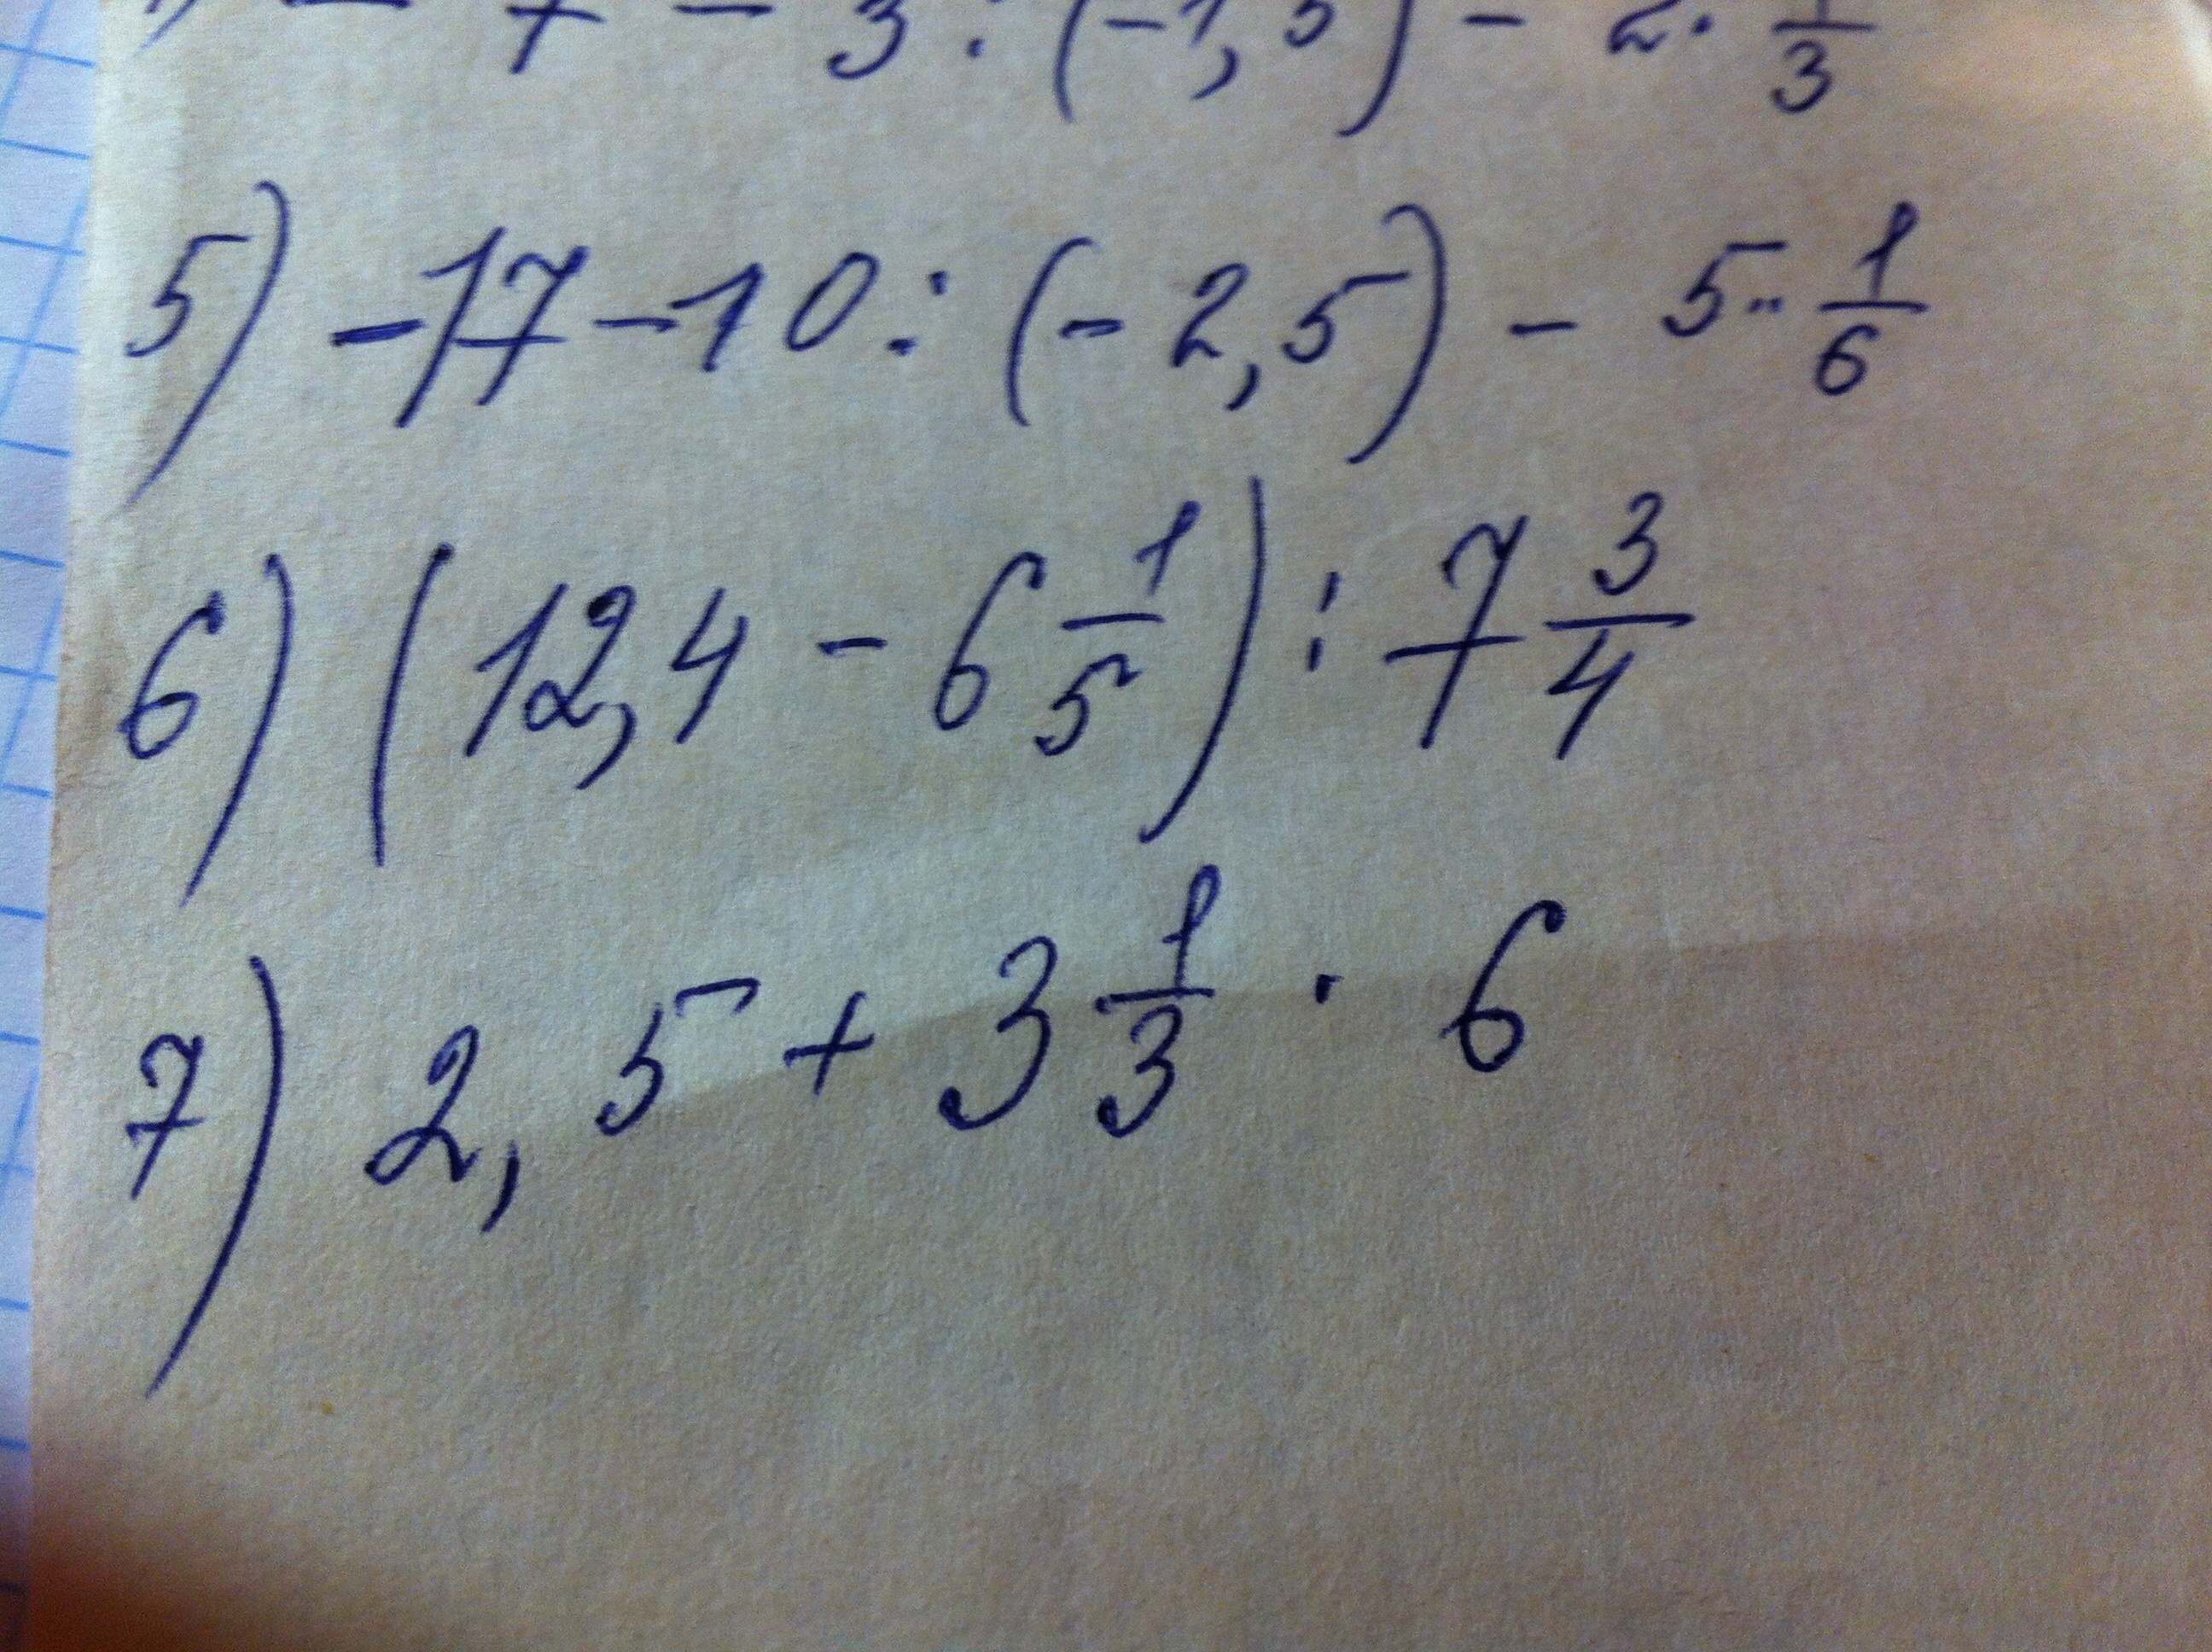 - 7 - 3 : (-1,5) - 2 · 1/3
5) -17 - 10 : (-2,5) - 5 · 1/6
6) (12,4 - 6 1/5) : 7 3/4
7) 2,5 + 3 1/3 · 6